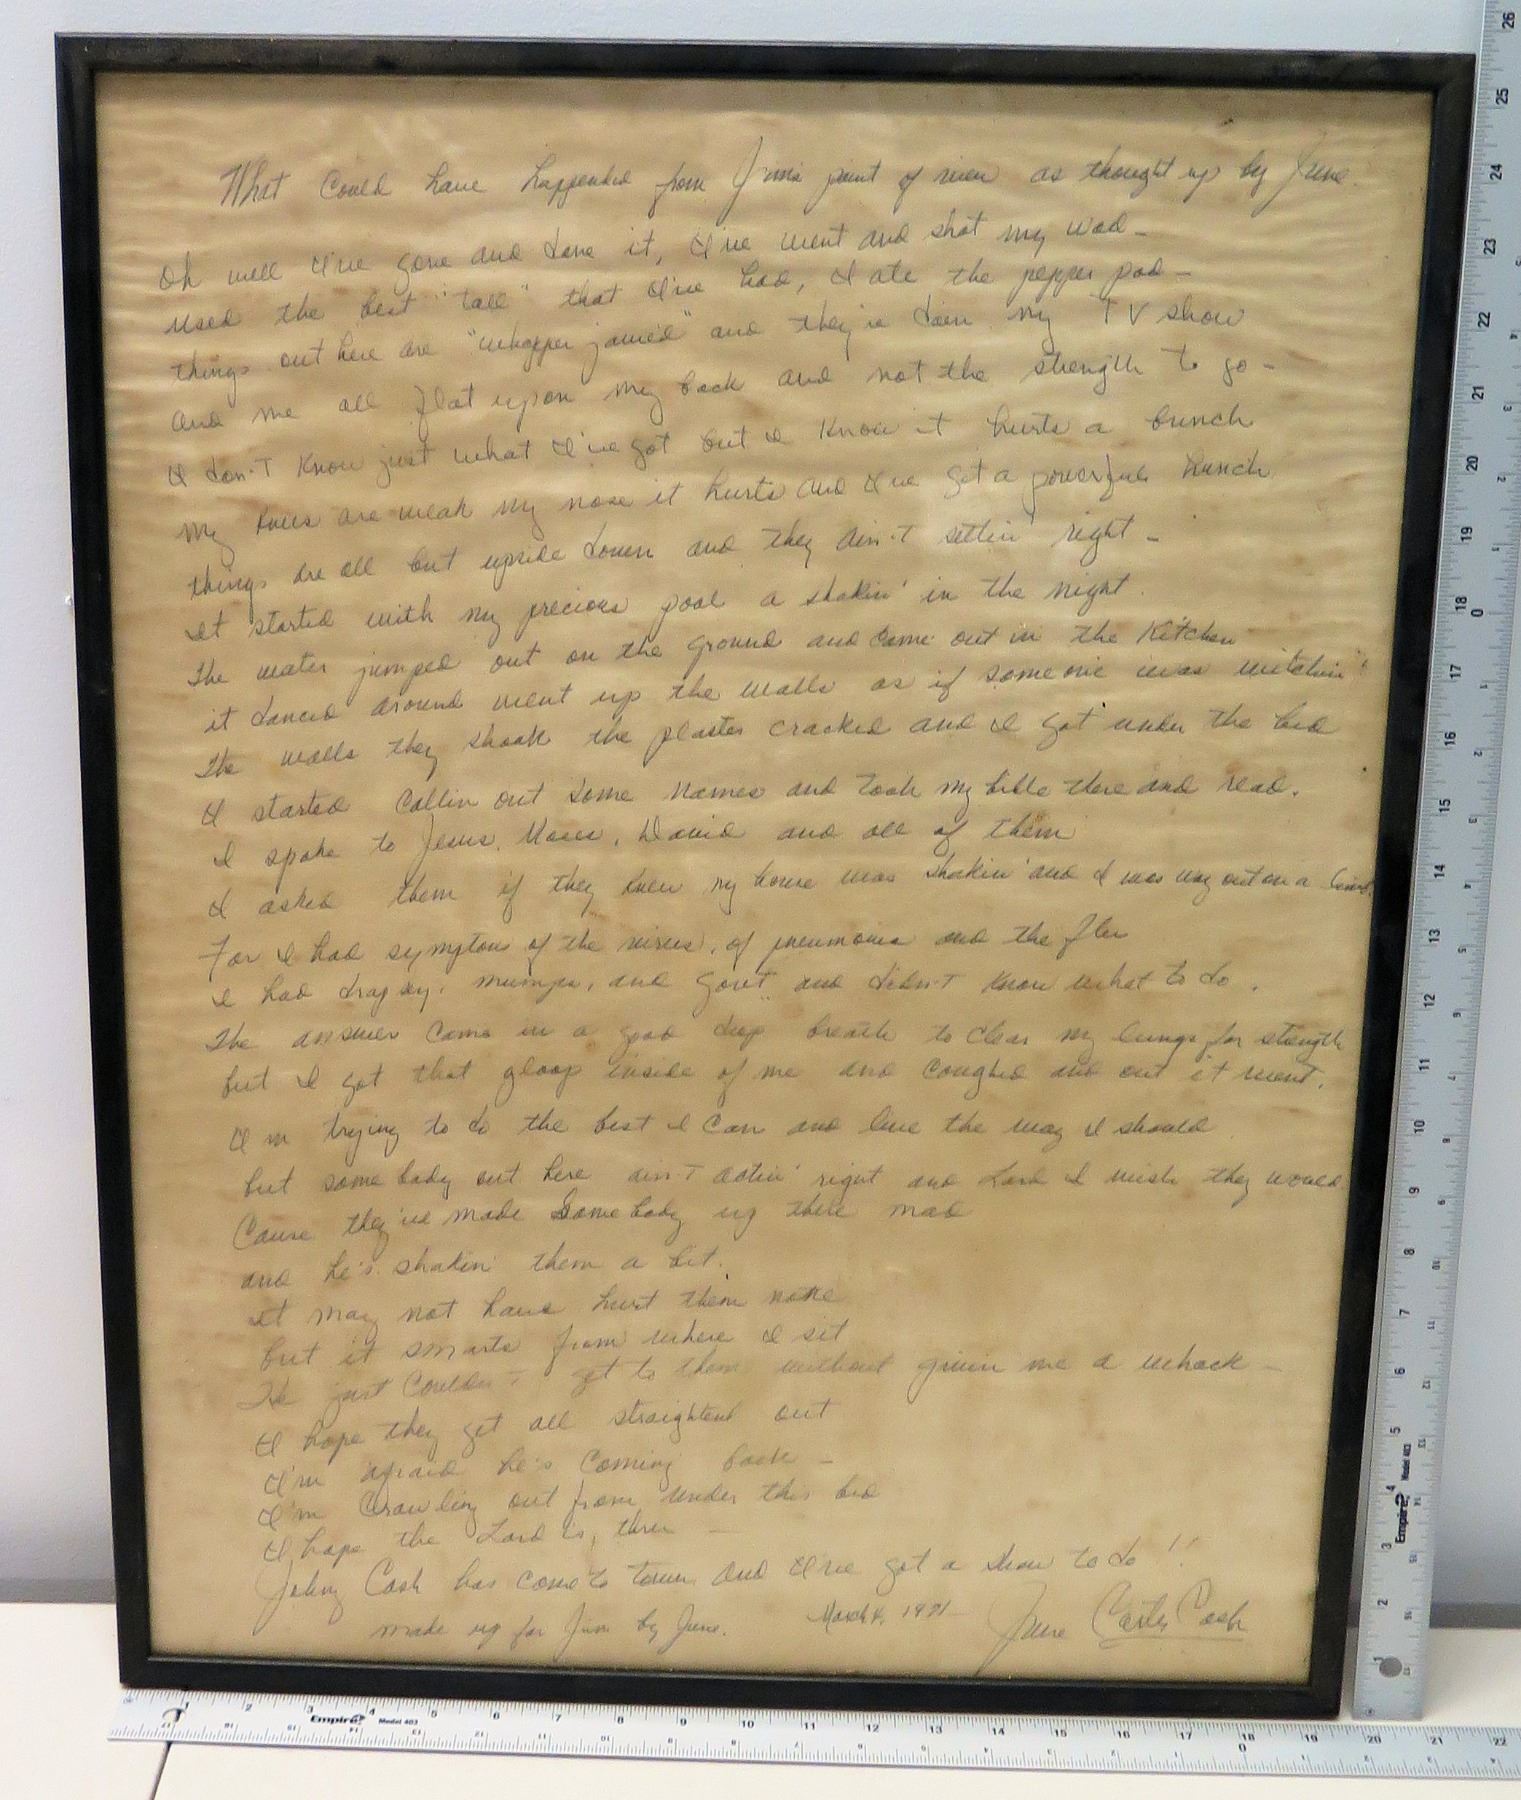 What Could have happended from Jim's point of view as thought up by June.
Oh well I've gone and done it, I've went and shot my wad -
used the best "tall" that I've had, I ate the pepper pod -
things out here are "whopper jawed" and they're doin my TV show
and me all flat upon my back and not the strength to go -
I don't know just what I've got but I know it hurts a bunch
my knees are weak my nose it hurts and I've got a powerful hunch
things are all but upside down and they ain't settin' right -
It started with my precious pool a shakin' in the night.
The water jumped out on the ground and come out in the Kitchen
it danced around went up the walls as if someone was witchin'
The walls they shook the plaster cracked and I got under the bed
I started callin out some names and took my bible there and read.
I spoke to Jesus, Moses, David and all of them
I asked them if they knew my house was shakin' and I was way out on a limb.
For I had symptons of the virus, of pneumonia and the flu
I had dropsy, mumps, and gout and didn't know what to do.
The answer came in a good deep breath to clear my lungs for strength
but I got that gloop inside of me and coughed and out it went.
I'm trying to do the best I can and live the way I should
but some body out here ain't actin' right and Lord I wish they would.
Cause they've made Some body up there mad
and he's shakin' them a bit.
It may not have hurt them none
but it smarts from where I sit
He just couldn't get to them without givin me a whack -
I hope they get all straightend out
I'm afraid he's coming back -
I'm Crawling out from under this bed
I hope the Lord is, thru -
Johny Cash has come to town and I've got a show to do!!
made up for Jim by June.
March 4, 1971
June Carter Cash
Empire Model 403
1 2 3 4 5 6 7 8 9 10 11 12 13 14 15 16 17 18 19 20 21 22
Empire Model 403
1 2 3 4 5 6 7 8 9 10 11 12 13 14 15 16 17 18 19 20 21 22 23 24 25 26